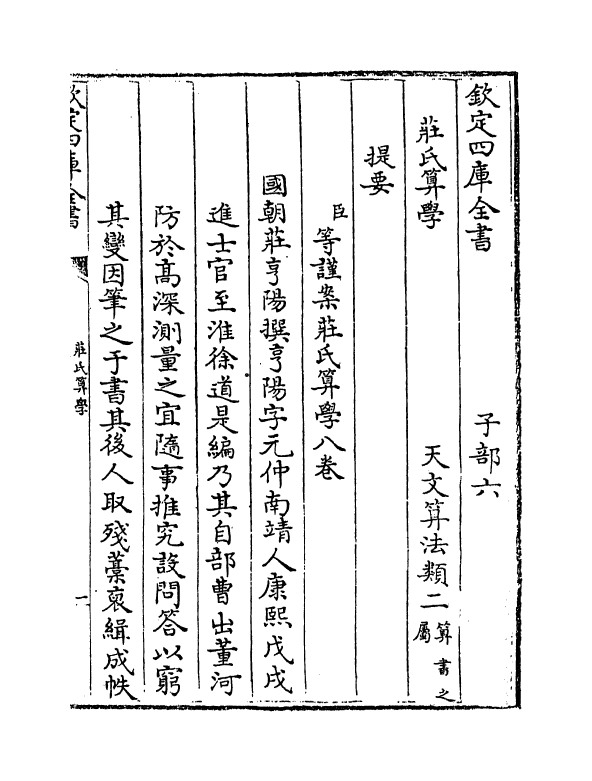 欽定四庫全書 子部六
莊氏算學 天文算法類二 算書之屬
提要
臣等謹案莊氏算學八卷
國朝莊亨陽撰亨陽字元仲南靖人康熙戊戌
進士官至淮徐道是編乃其自部曹出董河
防於髙深測量之宜隨事推究設問答以窮
其變因筆之于書其後人取殘藳裒緝成帙
欽定四庫全書 莊氏算學 一